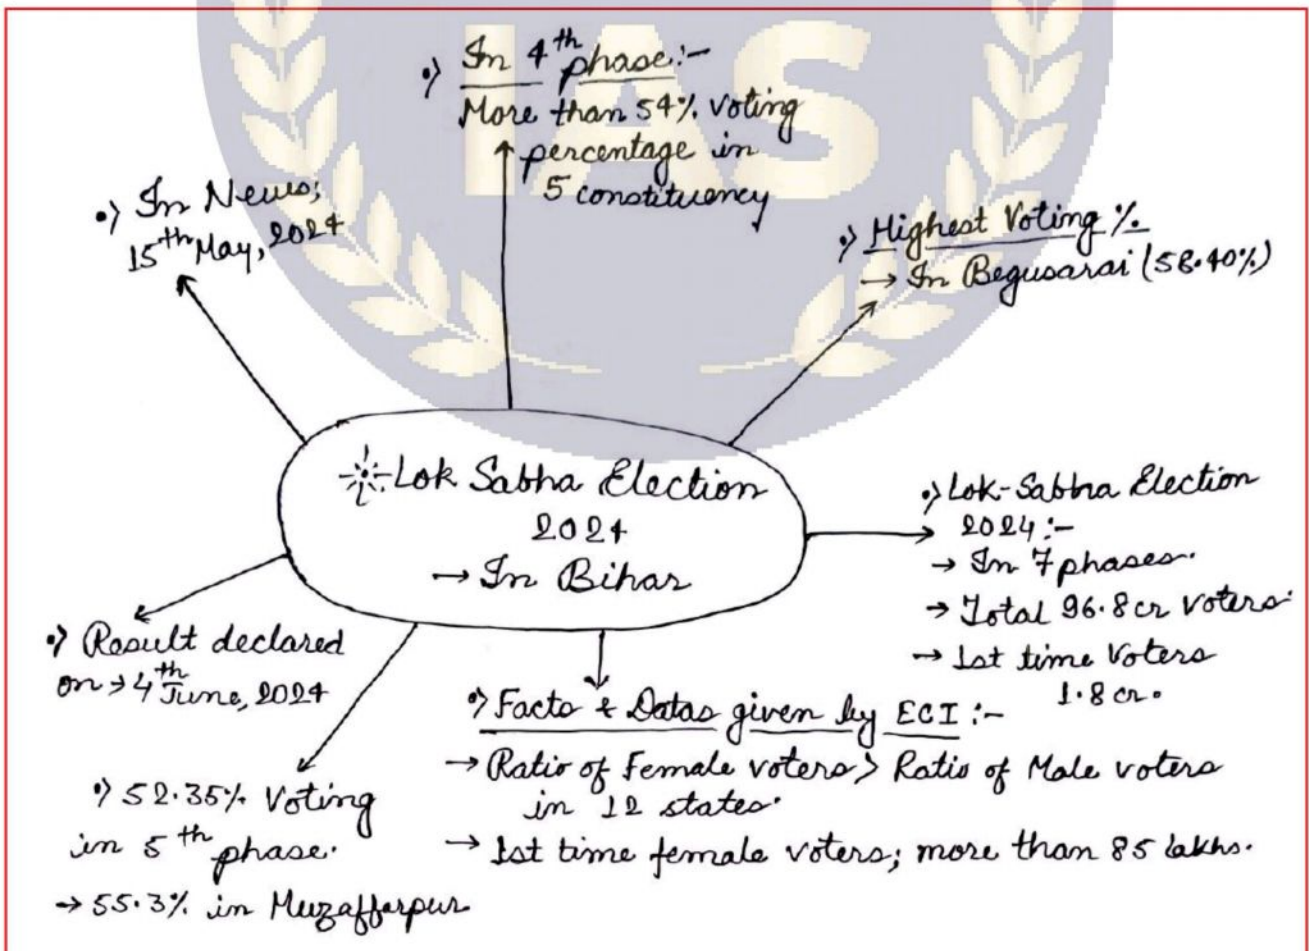 IAS
•) In 4th phase:-
More than 54% voting
percentage in
5 constituency
•) In News;
15th May, 2024
•) Highest Voting %
→ In Begusarai (58.40%)
Lok Sabha Election
2024
→ In Bihar
•) Lok-Sabha Election
2024:-
→ In 7 phases.
→ Total 96.8 cr voters.
→ 1st time Voters
1.8 cr.
•) Result declared
on → 4th June, 2024
•) Facts & Datas given by ECI :-
→ Ratio of Female voters > Ratio of Male voters
in 12 states.
→ 1st time female voters; more than 85 lakhs.
•) 52.35% Voting
in 5th phase.
→ 55.3% in Muzaffarpur